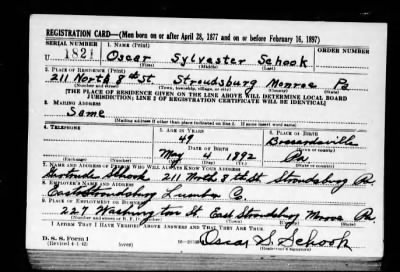 REGISTRATION CARD—(Men born on or after April 28, 1877 and on or before February 16, 1897)
SERIAL NUMBER 1. NAME (Print)
U 1821 Oscar Sylvester Schook
(First) (Middle) (Last)
2. PLACE OF RESIDENCE (Print)
211 North 8th St. Stroudsburg Monroe Pa
(Number and street) (Town, township, village, or city) (County) (State)
[THE PLACE OF RESIDENCE GIVEN ON THE LINE ABOVE WILL DETERMINE LOCAL BOARD
JURISDICTION; LINE 2 OF REGISTRATION CERTIFICATE WILL BE IDENTICAL]
3. MAILING ADDRESS
Same
[Mailing address if other than place indicated on line 2. If same insert word same]
4. TELEPHONE 5. AGE IN YEARS 6. PLACE OF BIRTH
49
DATE OF BIRTH
May 4 1892 Pa
(Exchange) (Number) (Mo.) (Day) (Yr.) (State or country)
7. NAME AND ADDRESS OF PERSON WHO WILL ALWAYS KNOW YOUR ADDRESS
Gertrude Schook 211 North 8th St Stroudsburg Pa.
8. EMPLOYER'S NAME AND ADDRESS
East Stroudsburg Lumber Co.
9. PLACE OF EMPLOYMENT OR BUSINESS
227 Washington St East Stroudsburg Monroe Pa.
I AFFIRM THAT I HAVE VERIFIED ABOVE ANSWERS AND THAT THEY ARE TRUE.
D. S. S. Form 1
(Revised 4-1-42) (over)
Oscar S. Schook